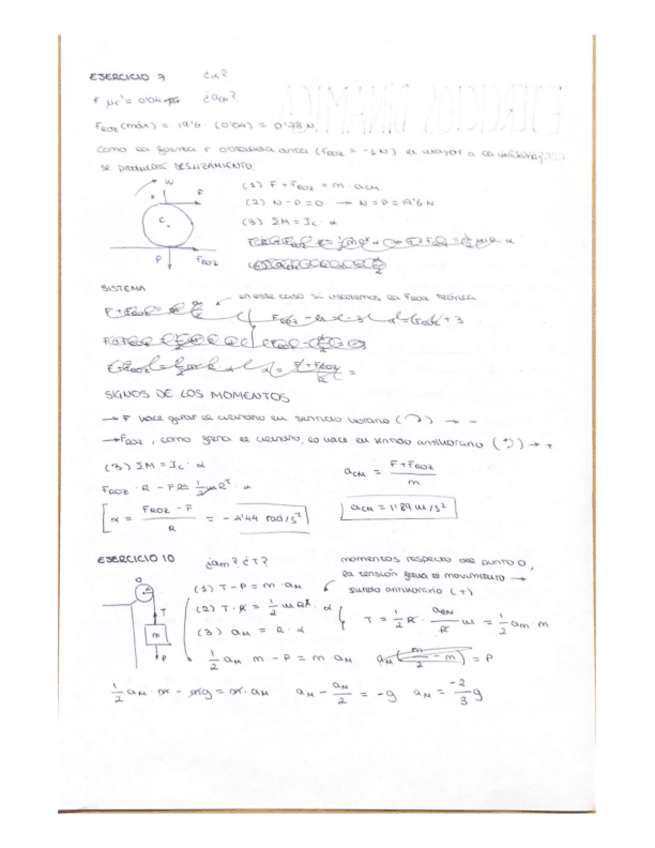 EJERCICIO 7 ¿α?
¿aCM?
FROZ (máx) = 19'6 · (0'04) = 0'78 N
Como la fuerza obtenida antes (FROZ = -1N) es mayor a la
se producirá DESLIZAMIENTO.
(1) F + FROZ = m · aCM
(2) N - P = 0 → N = P = 19'6 N
(3) ΣM = Ic · α
W
F
C
P
FROZ
SISTEMA
en este caso si usaremos la FROZ teórica
SIGNOS DE LOS MOMENTOS
→ F hace girar el cilindro en sentido horario (↷) → -
→ FROZ, como frena el cilindro, lo hace en sentido antihorario (↶) → +
(3) ΣM = Ic · α
aCM = F + FROZ / m
α = FROZ - F / R = - 4'44 rad/s²
aCM = 1'89 m/s²
EJERCICIO 10 ¿am? ¿T?
momentos respecto del punto O,
la tensión frena el movimiento →
sentido antihorario (+)
O
T
m
P
(1) T - P = m · aM
(2) T · R = 1/2 m R² · α
(3) aM = R · α
T = 1/2 R · aM/R m = 1/2 am · m
1/2 aM m - P = m · aM
1/2 aM · m - mg = m · aM aM - aM/2 = -g aM = -2/3 g